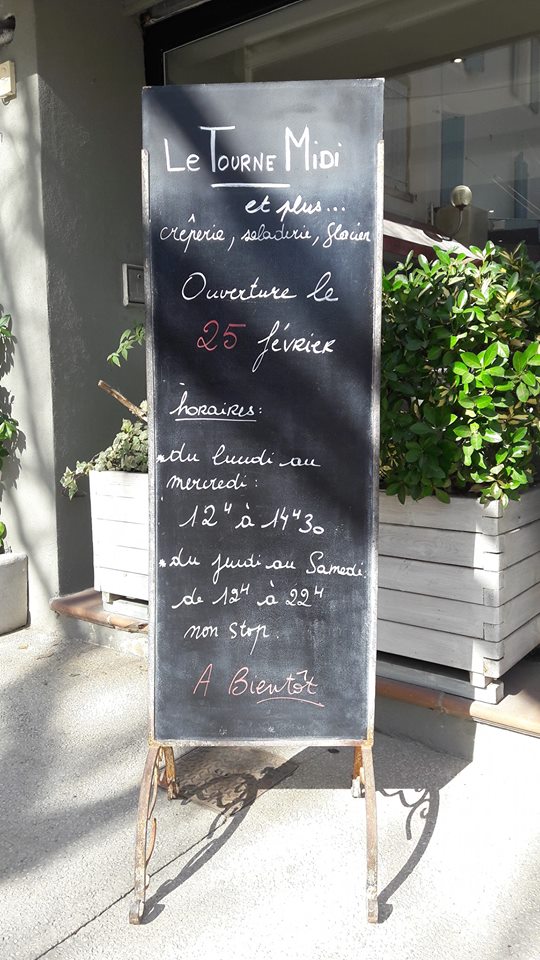 Le Tourne Midi
et plus...
crêperie, saladerie, glacier
Ouverture le
25 février
horaires:
*du lundi au
mercredi:
12H à 14H30
*du jeudi au Samedi:
de 12H à 22H
non stop.
A Bientôt